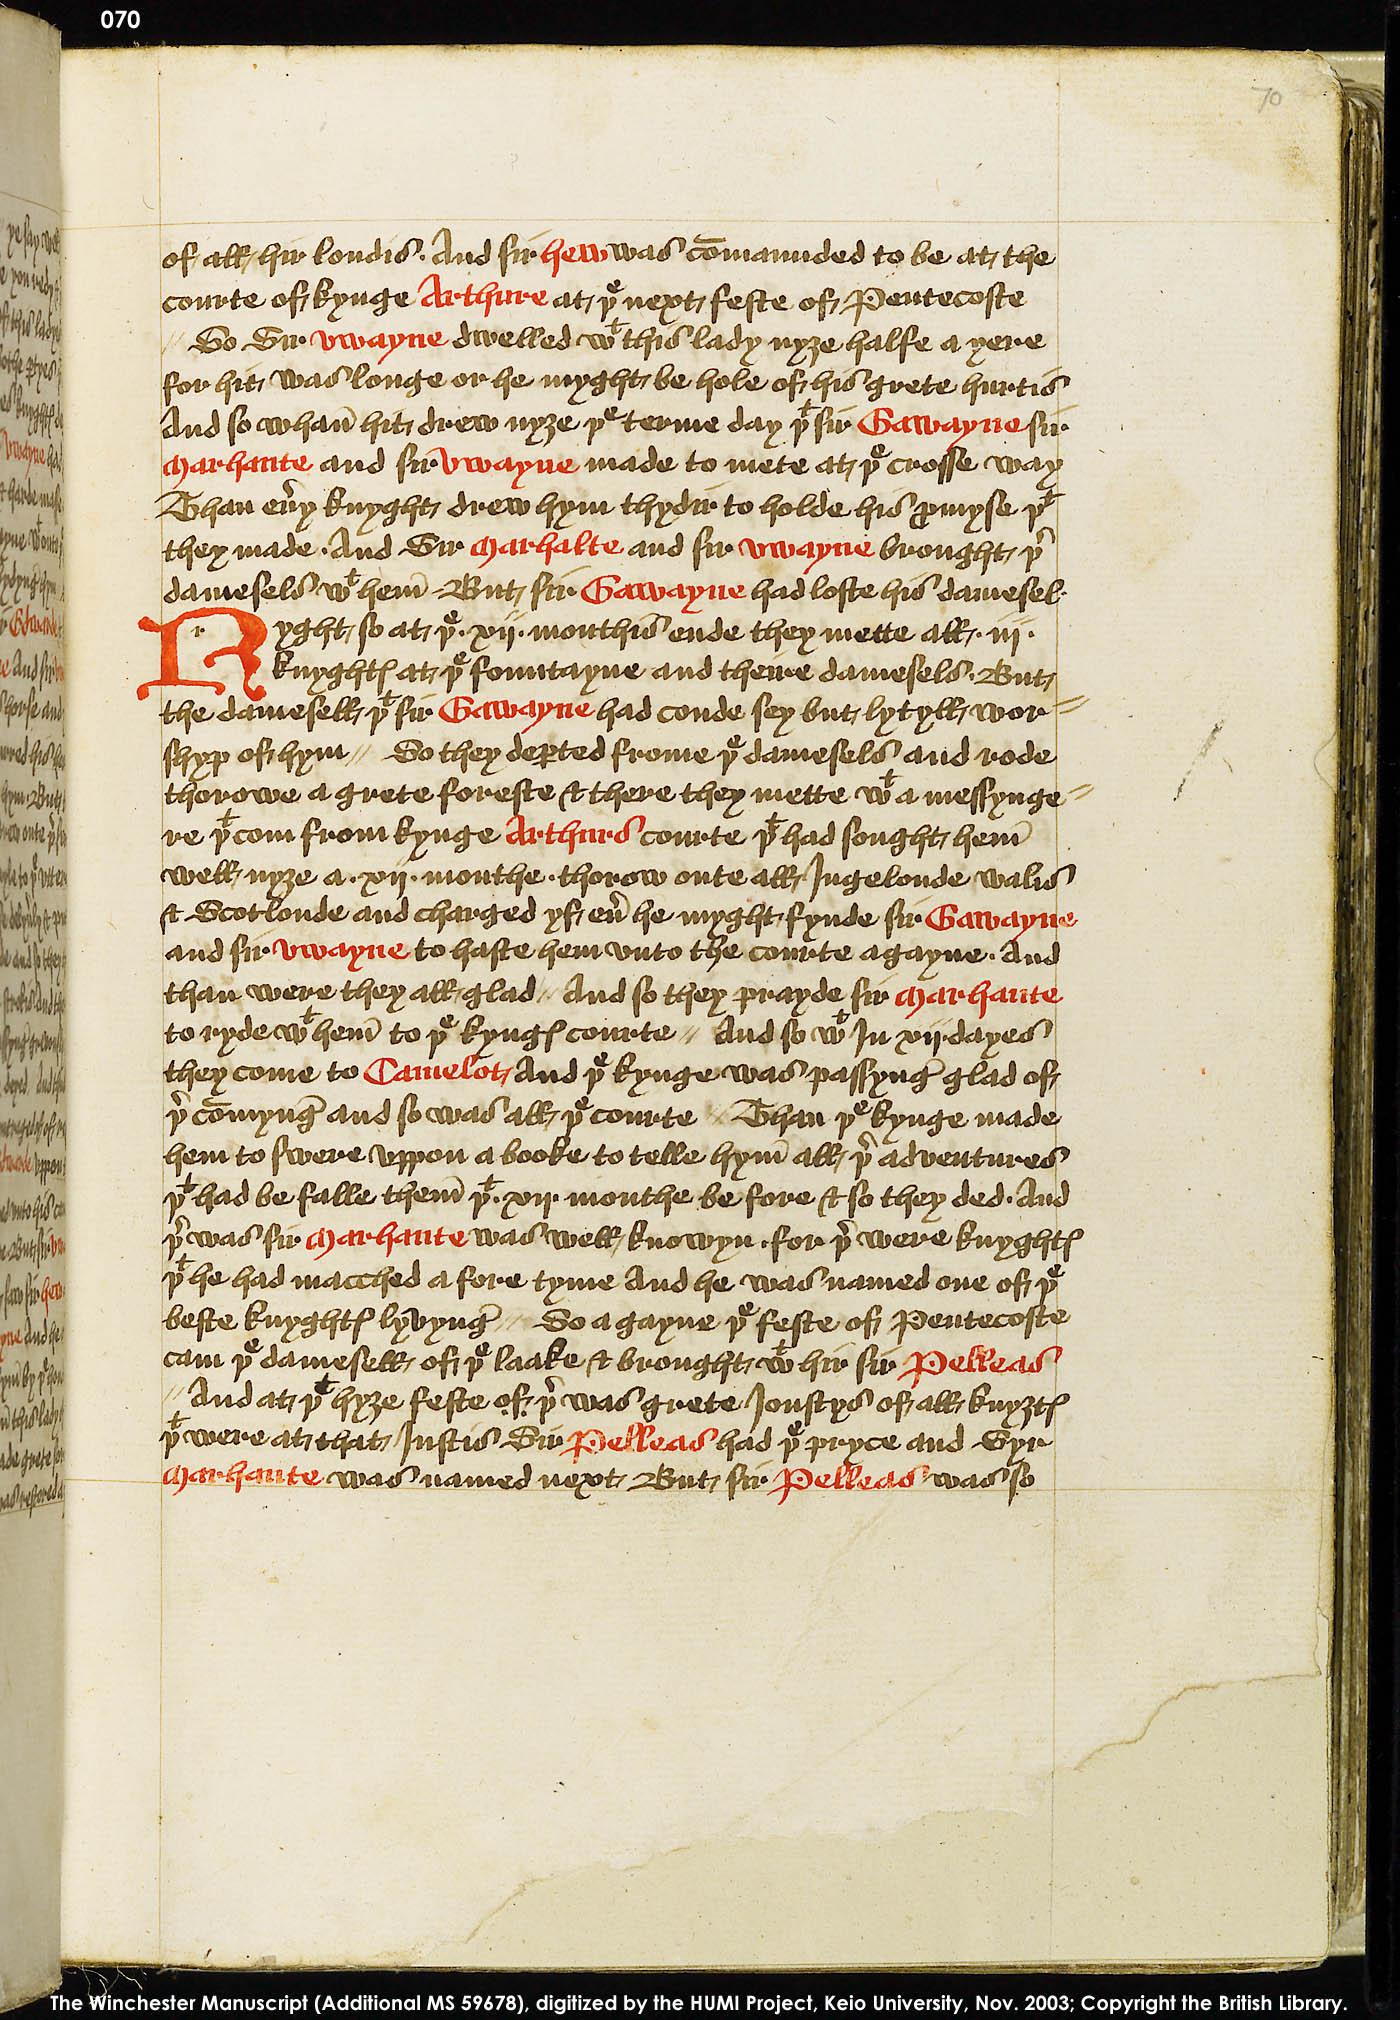 070
70
of all hir londis. And sir hew was com̄aunded to be at the
courte of kynge Arthure at þe next feste of Pentecoste
// So Sir vwayne dwelled wt this lady nyȝe halfe a yere
for hit was longe or he myght be hole of his grete hurtis
And so whan̄ hit drew nyȝe þe terme day þt sir Gawayne sir
Marhaute and sir vwayne made to mete at þe crosse way
Than eu̓y knyght drew hym thydir to holde his ꝓmyse þt
they made. And Sir Marhalte and sir vwayne brought þr
damesels wt hem̄. But sir Gawayne had loste his damesel.
Ryght so at þe .xij. monthis ende they mette all .iij.
knyghtꝭ at þe fountayne and theire damesels. But
the damesell þt sir Gawayne had coude sey but lytyll wor=
shyp of hym // So they deꝑted frome þe damesels and rode
thorowe a grete foreste & there they mette wt a messynge=
re þt com from kynge Arthurs courte þt had sought hem̄
well nyȝe a .xij. monthe. thorow oute all Ingelonde walis
& Scotlonde and charged yf eu̓ he myght fynde sir Gawayne
and sir vwayne to haste hem vnto the courte agayne. And
than were they all glad // And so they prayde sir Marhaute
to ryde wt hem̄ to þe kyngꝭ courte // And so wt In xij dayes
they come to Camelot And þe kynge was passyng̉ glad of
þr com̄yng̉ and so was all þe courte // Than þe kynge made
hem to swere vppon a booke to telle hym̄ all þr adventures
þt had be falle them̄ þt .xij. monthe be fore & so they ded. And
þr was sir Marhaute was well knowyn. for þr were knyghtꝭ
þt he had macched a fore tyme And he was named one of þe
beste knyghtꝭ lyvyng̉ // So agayne þe feste of Pentecoste
cam þe damesell of þe laake & brought wt hir sir Pelleas
// And at þt hyȝe feste of þr was grete Joustys of all knyȝtꝭ
þt were at that Justis Sir Pelleas had þe pryce and Syr
Marhaute was named next But sir Pelleas was so
The Winchester Manuscript (Additional MS 59678), digitized by the HUMI Project, Keio University, Nov. 2003; Copyright the British Library.